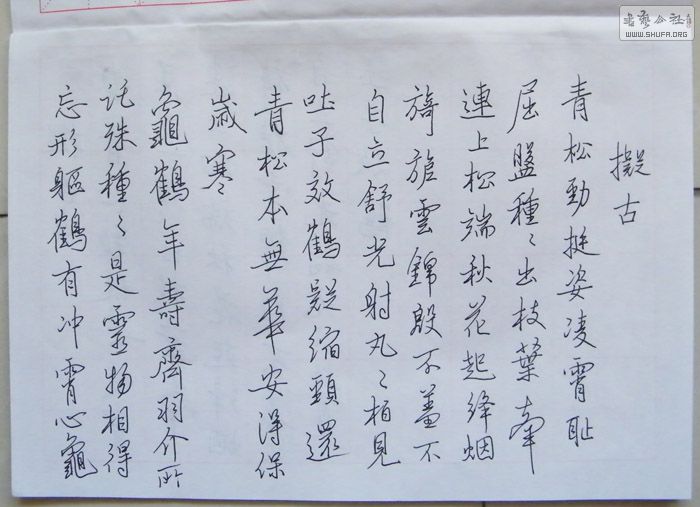 擬古
青松勁挺姿凌霄耻
屈盤種〻出枝葉牽
連上松端秋花起絳烟
旖旎雲錦殷不羞不
自立舒光射丸〻柏見
吐子效鶴疑縮頸還
青松本無華安得保
歲寒
龜鶴年壽齊羽介所
託殊種〻是靈物相得
忘形軀鶴有冲霄心龜
書藝公社
WWW.SHUFA.ORG